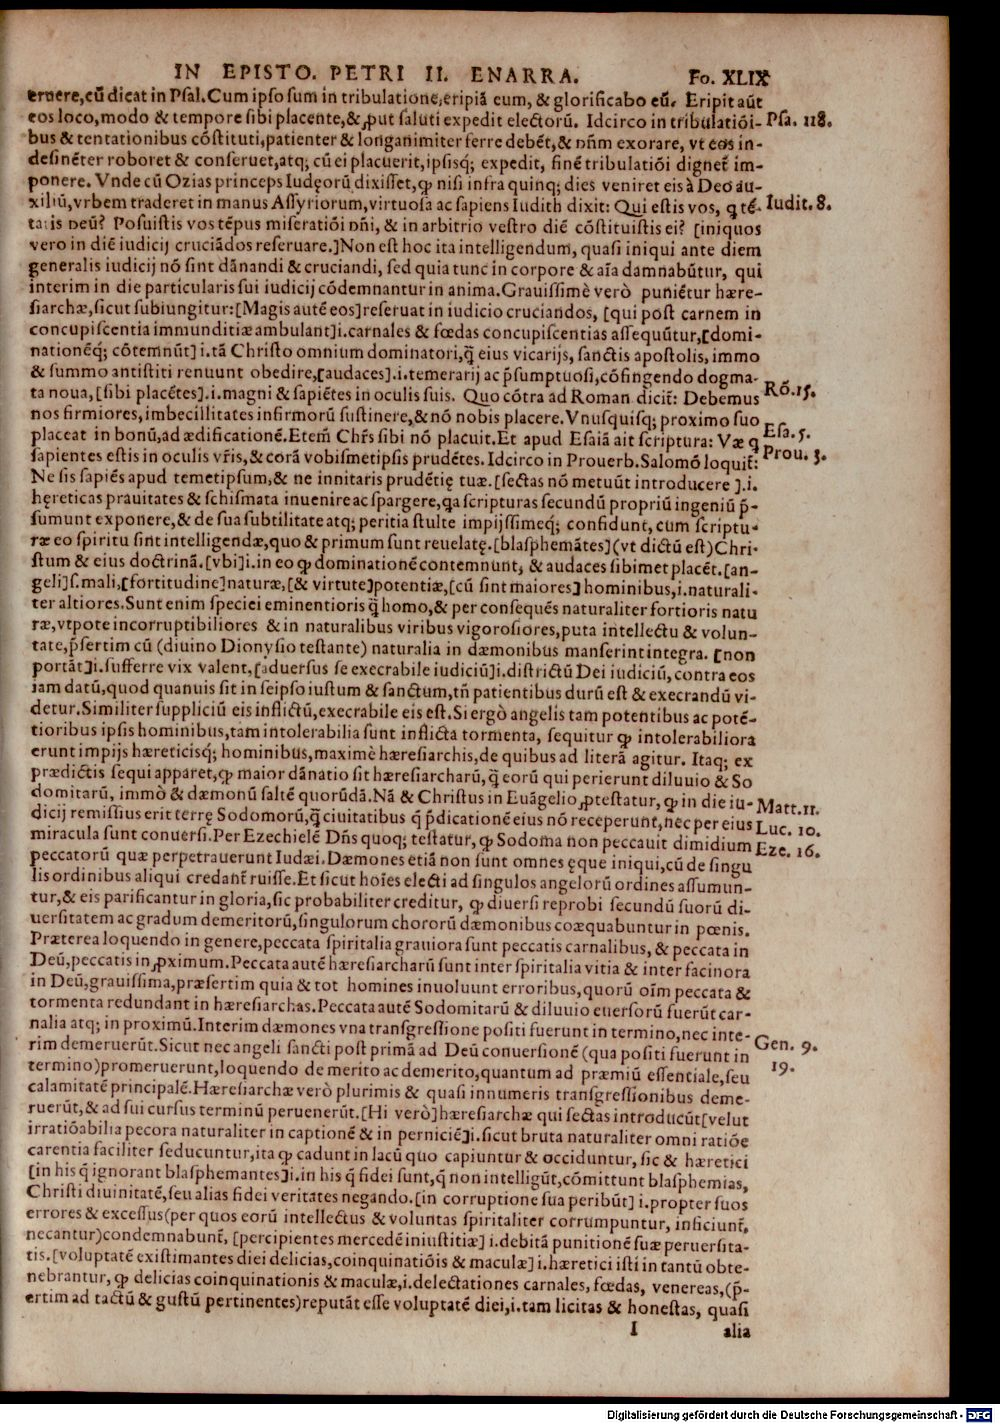 IN EPISTO. PETRI II. ENARRA. Fo. XLIX
eruere,cũ dicat in Psal.Cum ipso sum in tribulatione,eripiã eum, & glorificabo eũ. Eripit aũt
eos loco,modo & tempore sibi placente,& ꝓut saluti expedit electorũ. Idcirco in tribulatiói- Psa. 118.
bus & tentationibus cõstituti,patienter & longanimiter ferre debẽt,& dñm exorare, vt eos in-
desinẽter roboret & conseruet,atq; cũ ei placuerit,ipsisq; expedit, finẽ tribulatiõi dignet̃ im-
ponere. Vnde cũ Ozias princeps Iudęorũ dixisset,ꝙ nisi infra quinq; dies veniret eis à Deo au-
xiliũ,vrbem traderet in manus Assyriorum,virtuosa ac sapiens Iudith dixit: Qui estis vos, q̃ tẽ- Iudit. 8.
tatis deũ? Posuistis vos tẽpus miseratiõi dñi, & in arbitrio vestro diẽ cõstituistis ei? [iniquos
vero in diẽ iudicij cruciãdos reseruare.]Non est hoc ita intelligendum, quasi iniqui ante diem
generalis iudicij nõ sint dãnandi & cruciandi, sed quia tunc in corpore & aĩa damnabũtur, qui
interim in die particularis sui iudicij cõdemnantur in anima.Grauissimè verò puniẽtur hære-
siarchæ,sicut subiungitur:[Magis autẽ eos]reseruat in iudicio cruciandos, [qui post carnem in
concupiscentia immunditiæ ambulant]i.carnales & fœdas concupiscentias assequũtur,[domi-
nationẽq; cõtemnũt] i.tã Christo omnium dominatori,q̃ eius vicarijs, sanctis apostolis, immo
& summo antistiti renuunt obedire,[audaces].i.temerarij ac p̃sumptuosi,cõfingendo dogma-
ta noua,[sibi placẽtes].i.magni & sapiẽtes in oculis suis. Quo cõtra ad Roman dicit̃: Debemus Rõ.15.
nos firmiores,imbecillitates infirmorũ sustinere,& nõ nobis placere. Vnusquisq; proximo suo
placeat in bonũ,ad ædificationẽ.Etem̃ Chr̃s sibi nõ placuit.Et apud Esaiã ait scriptura: Væ q̃ Esa. 5.
sapientes estis in oculis vr̃is,& corã vobismetipsis prudẽtes. Idcirco in Prouerb.Salomõ loquit̃: Prou. 3.
Ne sis sapiẽs apud temetipsum,& ne innitaris prudẽtię tuæ.[sectas nõ metuũt introducere ].i.
hęreticas prauitates & schismata inuenire ac spargere,q̃a scripturas secundũ propriũ ingeniũ p̃-
sumunt exponere,& de sua subtilitate atq; peritia stulte impijssimeq; confidunt, cum scriptu-
ræ eo spiritu sint intelligendæ,quo & primum sunt reuelatę.[blasphemãtes](vt dictũ est)Chri-
stum & eius doctrinã.[vbi]i.in eo ꝙ dominationẽ contemnunt, & audaces sibimet placẽt.[an-
geli]s.mali,[fortitudine]naturæ,[& virtute]potentiæ,[cũ sint maiores]hominibus,i.naturali-
ter altiores.Sunt enim speciei eminentioris q̃ homo,& per consequẽs naturaliter fortioris natu
ræ,vtpote incorruptibiliores & in naturalibus viribus vigorosiores,puta intellectu & volun-
tate,p̃sertim cũ (diuino Dionysio testante) naturalia in dæmonibus manserint integra. [non
portãt]i.sufferre vix valent,[aduersus se execrabile iudiciũ]i.districtũ Dei iudiciũ, contra eos
iam datũ,quod quanuis sit in seipso iustum & sanctum,tñ patientibus durũ est & execrandũ vi-
detur.Similiter suppliciũ eis inflictũ,execrabile eis est.Si ergò angelis tam potentibus ac potẽ-
tioribus ipsis hominibus,tam intolerabilia sunt inflicta tormenta, sequitur ꝙ intolerabiliora
erunt impijs hæreticisq; hominibus,maximè hæresiarchis,de quibus ad literã agitur. Itaq; ex
prædictis sequi apparet,ꝙ maior dãnatio sit hæresiarcharũ,q̃ eorũ qui perierunt diluuio & So
domitarũ, immò & dæmonũ saltẽ quorũdã.Nã & Christus in Euãgelio ꝓtestatur, ꝙ in die iu- Matt.11.
dicij remissius erit terrę Sodomorũ,q̃ ciuitatibus q̃ p̃dicationẽ eius nõ receperunt,nec per eius Luc. 10.
miracula sunt conuersi.Per Ezechielẽ Dñs quoq; testatur, ꝙ Sodoma non peccauit dimidium Eze. 16.
peccatorũ quæ perpetrauerunt Iudæi.Dæmones etiã non sunt omnes ęque iniqui,cũ de singu
lis ordinibus aliqui credant̃ ruisse.Et sicut hoĩes electi ad singulos angelorũ ordines assumun-
tur,& eis parificantur in gloria,sic probabiliter creditur, ꝙ diuersi reprobi secundũ suorũ di-
uersitatem ac gradum demeritorũ,singulorum chororũ dæmonibus coæquabuntur in pœnis.
Præterea loquendo in genere,peccata spiritalia grauiora sunt peccatis carnalibus, & peccata in
Deũ,peccatis in ꝓximum.Peccata autẽ hæresiarcharũ sunt inter spiritalia vitia & inter facinora
in Deũ,grauissima,præsertim quia & tot homines inuoluunt erroribus,quorũ oĩm peccata &
tormenta redundant in hæresiarchas.Peccata autẽ Sodomitarũ & diluuio euersorũ fuerũt car-
nalia atq; in proximũ.Interim dæmones vna transgressione positi fuerunt in termino,nec inte-
rim demeruerũt.Sicut nec angeli sancti post primã ad Deũ conuersionẽ (qua positi fuerunt in Gen. 9.
termino)promeruerunt,loquendo de merito ac demerito,quantum ad præmiũ essentiale,seu 19.
calamitatẽ principalẽ.Hæresiarchæ verò plurimis & quasi innumeris transgressionibus deme-
ruerũt,& ad sui cursus terminũ peruenerũt.[Hi verò]hæresiarchæ qui sectas introducũt[velut
irratiõabilia pecora naturaliter in captionẽ & in perniciẽ]i.sicut bruta naturaliter omni ratiõe
carentia faciliter seducuntur,ita ꝙ cadunt in lacũ quo capiuntur & occiduntur, sic & hæretici
[in his q̃ ignorant blasphemantes]i.in his q̃ fidei sunt,q̃ non intelligũt,cõmittunt blasphemias,
Christi diuinitatẽ,seu alias fidei veritates negando.[in corruptione sua peribũt] i.propter suos
errores & excessus(per quos eorũ intellectus & voluntas spiritaliter corrumpuntur, inficiunt̃,
necantur)condemnabunt̃, [percipientes mercedẽ iniustitiæ] i.debitã punitionẽ suæ peruersita-
tis.[voluptatẽ existimantes diei delicias,coinquinatiõis & maculæ] i.hæretici isti in tantũ obte-
nebrantur, ꝙ delicias coinquinationis & maculæ,i.delectationes carnales, fœdas, venereas,(p̃-
sertim ad tactũ & gustũ pertinentes)reputãt esse voluptatẽ diei,i.tam licitas & honestas, quasi
I alia
Digitalisierung gefördert durch die Deutsche Forschungsgemeinschaft - DFG